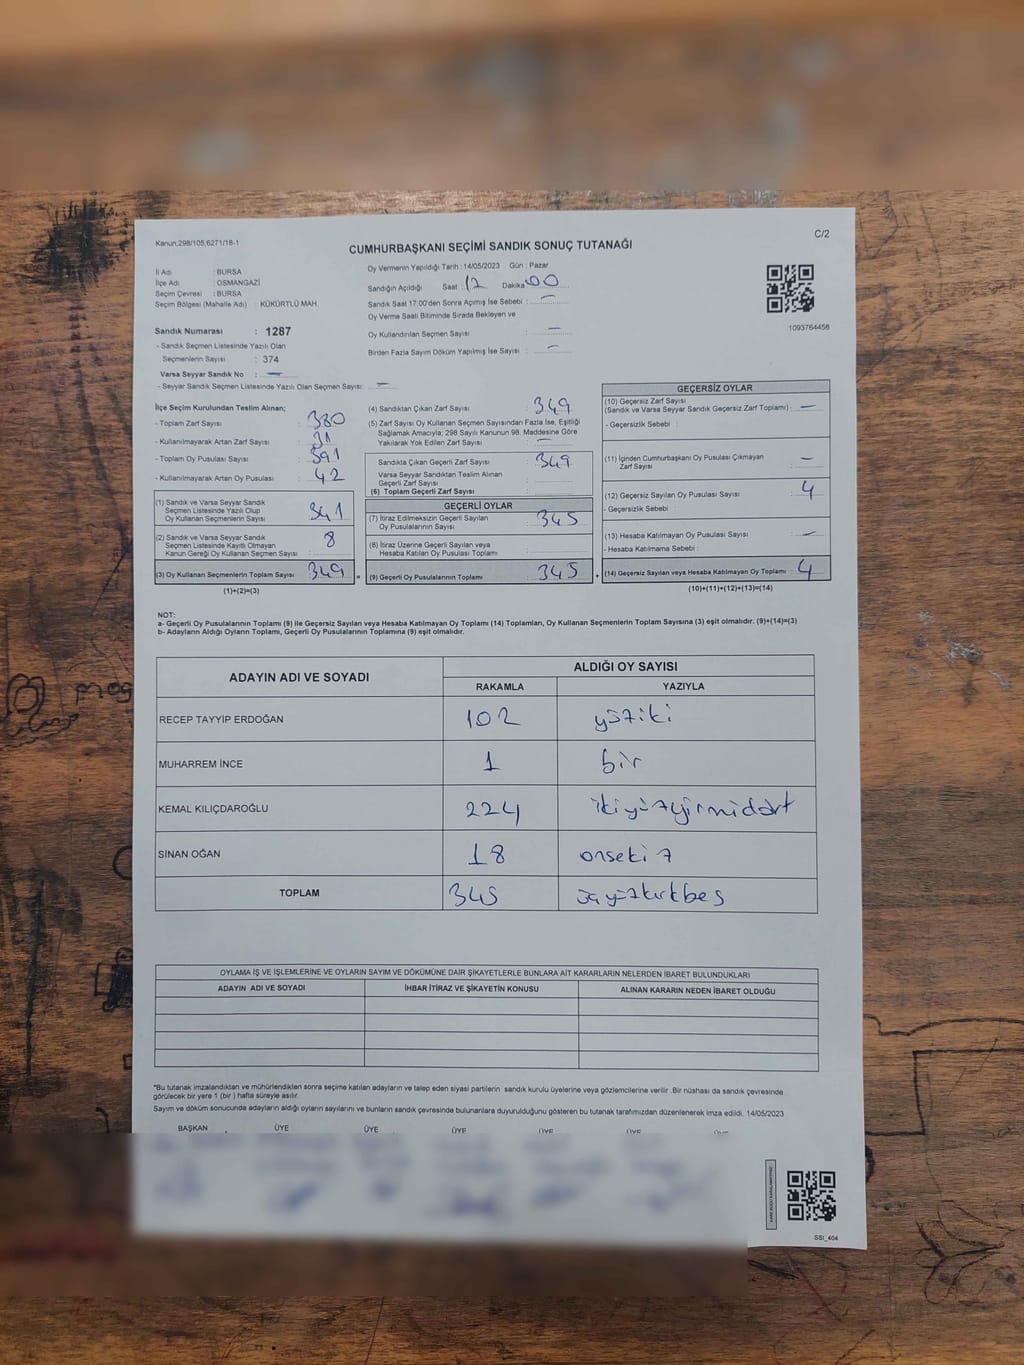 Kanun;298/105;6271/18-1
C/2
CUMHURBAŞKANI SEÇİMİ SANDIK SONUÇ TUTANAĞI
İl Adı : BURSA
İlçe Adı : OSMANGAZİ
Seçim Çevresi : BURSA
Seçim Bölgesi (Mahalle Adı) : KÜKÜRTLÜ MAH.
Sandık Numarası : 1287
- Sandık Seçmen Listesinde Yazılı Olan
Seçmenlerin Sayısı : 374
Varsa Seyyar Sandık No : —
- Seyyar Sandık Seçmen Listesinde Yazılı Olan Seçmen Sayısı: —
Oy Vermenin Yapıldığı Tarih : 14/05/2023 Gün : Pazar
Sandığın Açıldığı Saat : 17 Dakika: 00
Sandık Saat 17:00'den Sonra Açımış İse Sebebi : —
Oy Verme Saati Bitiminde Sırada Bekleyen ve
Oy Kullandırılan Seçmen Sayısı : —
Birden Fazla Sayım Döküm Yapılmış İse Sayısı : —
1093764458
İlçe Seçim Kurulundan Teslim Alınan;
- Toplam Zarf Sayısı : 380
- Kullanılmayarak Artan Zarf Sayısı : 31
- Toplam Oy Pusulası Sayısı : 391
- Kullanılmayarak Artan Oy Pusulası : 42
(1) Sandık ve Varsa Seyyar Sandık
Seçmen Listesinde Yazılı Olup
Oy Kullanan Seçmenlerin Sayısı : 341
(2) Sandık ve Varsa Seyyar Sandık
Seçmen Listesinde Kayıtlı Olmayan
Kanun Gereği Oy Kullanan Seçmen Sayısı : 8
(3) Oy Kullanan Seçmenlerin Toplam Sayısı : 349
(1)+(2)=(3)
(4) Sandıktan Çıkan Zarf Sayısı : 349
(5) Zarf Sayısı Oy Kullanan Seçmen Sayısından Fazla İse, Eşitliği
Sağlamak Amacıyla; 298 Sayılı Kanunun 98. Maddesine Göre
Yakılarak Yok Edilen Zarf Sayısı : —
Sandıkta Çıkan Geçerli Zarf Sayısı : 349
Varsa Seyyar Sandıktan Teslim Alınan
Geçerli Zarf Sayısı :
(6) Toplam Geçerli Zarf Sayısı :
GEÇERLİ OYLAR
(7) İtiraz Edilmeksizin Geçerli Sayılan
Oy Pusulalarının Sayısı : 345
(8) İtiraz Üzerine Geçerli Sayılan veya
Hesaba Katılan Oy Pusulası Toplamı :
= (9) Geçerli Oy Pusulalarının Toplamı : 345
GEÇERSİZ OYLAR
(10) Geçersiz Zarf Sayısı
(Sandık ve Varsa Seyyar Sandık Geçersiz Zarf Toplamı) : —
- Geçersizlik Sebebi :
(11) İçinden Cumhurbaşkanı Oy Pusulası Çıkmayan
Zarf Sayısı : —
(12) Geçersiz Sayılan Oy Pusulası Sayısı : 4
- Geçersizlik Sebebi :
(13) Hesaba Katılmayan Oy Pusulası Sayısı : —
- Hesaba Katılmama Sebebi :
+ (14) Geçersiz Sayılan veya Hesaba Katılmayan Oy Toplamı : 4
(10)+(11)+(12)+(13)=(14)
NOT:
a- Geçerli Oy Pusulalarının Toplamı (9) ile Geçersiz Sayılan veya Hesaba Katılmayan Oy Toplamı (14) Toplamları, Oy Kullanan Seçmenlerin Toplam Sayısına (3) eşit olmalıdır. (9)+(14)=(3)
b- Adayların Aldığı Oyların Toplamı, Geçerli Oy Pusulalarının Toplamına (9) eşit olmalıdır.
ADAYIN ADI VE SOYADI ALDIĞI OY SAYISI
RAKAMLA YAZIYLA
RECEP TAYYİP ERDOĞAN 102 yüziki
MUHARREM İNCE 1 bir
KEMAL KILIÇDAROĞLU 224 ikiyüzyirmidört
SİNAN OĞAN 18 onsekiz
TOPLAM 345 üçyüzkırkbeş
OYLAMA İŞ VE İŞLEMLERİNE VE OYLARIN SAYIM VE DÖKÜMÜNE DAİR ŞİKAYETLERLE BUNLARA AİT KARARLARIN NELERDEN İBARET BULUNDUKLARI
ADAYIN ADI VE SOYADI İHBAR İTİRAZ VE ŞİKAYETİN KONUSU ALINAN KARARIN NEDEN İBARET OLDUĞU
*Bu tutanak imzalandıktan ve mühürlendikten sonra seçime katılan adayların ve talep eden siyasi partilerin sandık kurulu üyelerine veya gözlemcilerine verilir .Bir nüshası da sandık çevresinde
görülecek bir yere 1 (bir ) hafta süreyle asılır.
Sayım ve döküm sonucunda adayların aldığı oyların sayılarını ve bunların sandık çevresinde bulunanlara duyurulduğunu gösteren bu tutanak tarafımızdan düzenlenerek imza edildi. 14/05/2023
BAŞKAN ÜYE ÜYE ÜYE ÜYE ÜYE
SSI_404
prog